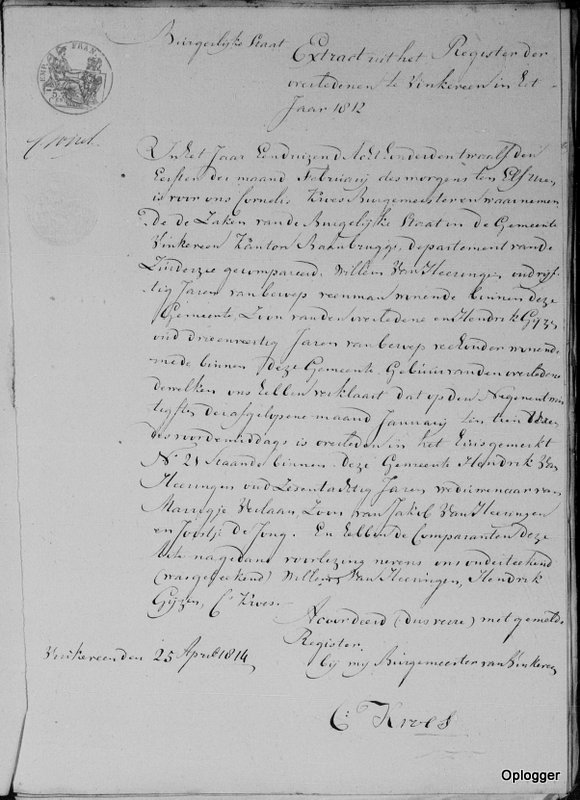 Burgerlijke Staat
Extract uit het Register der
overledenen te Vinkeveen in het
Jaar 1812
In het Jaar Eenduizend Acht honderd en twaalf den
Eersten der maand Februarij des morgens ten Elf Uren,
is voor ons Cornelis Kroes Burgemeester en waarnemen
de de Zaken van de Burgelijke Staat in de Gemeente
Vinkeveen Kanton Baambrugge, departement van de
Zuiderzee gecompareerd, Willem Van Heeringen oud vijf
tig Jaren van beroep veenman wonende binnen deze
Gemeente, Zoon van den overledene en Hendrik Gijzen
oud drieenveertig Jaren van beroep veehouder wonende
mede binnen deze Gemeente Gebuur van den overledene
dewelken ons hebben verklaart dat op den Negenentwin
tigsten der afgelopene maand Januarij ten tien Uren
des voordemiddags is overleden in het huis gemerkt
No 21 Staande binnen deze Gemeente Hendrik Van
Heeringen oud Zesentachtig Jaren weduwenaar van
Marrigje Verlaan, Zoon van Jakob Van Heeringen
en Joostje de Jong. En hebben de Comparanten deze
Acte na gedane voorlezing nevens ons onderteekend
(was geteekend) Willem Van Heeringen, Hendrik
Gijzen, C. Kroes.
Acoordeerd (dus verre) met gemelde
Register.
Vinkeveen den 25 April 1814,
bij mij Burgemeester van Vinkeveen
C: Kroes
Oplogger